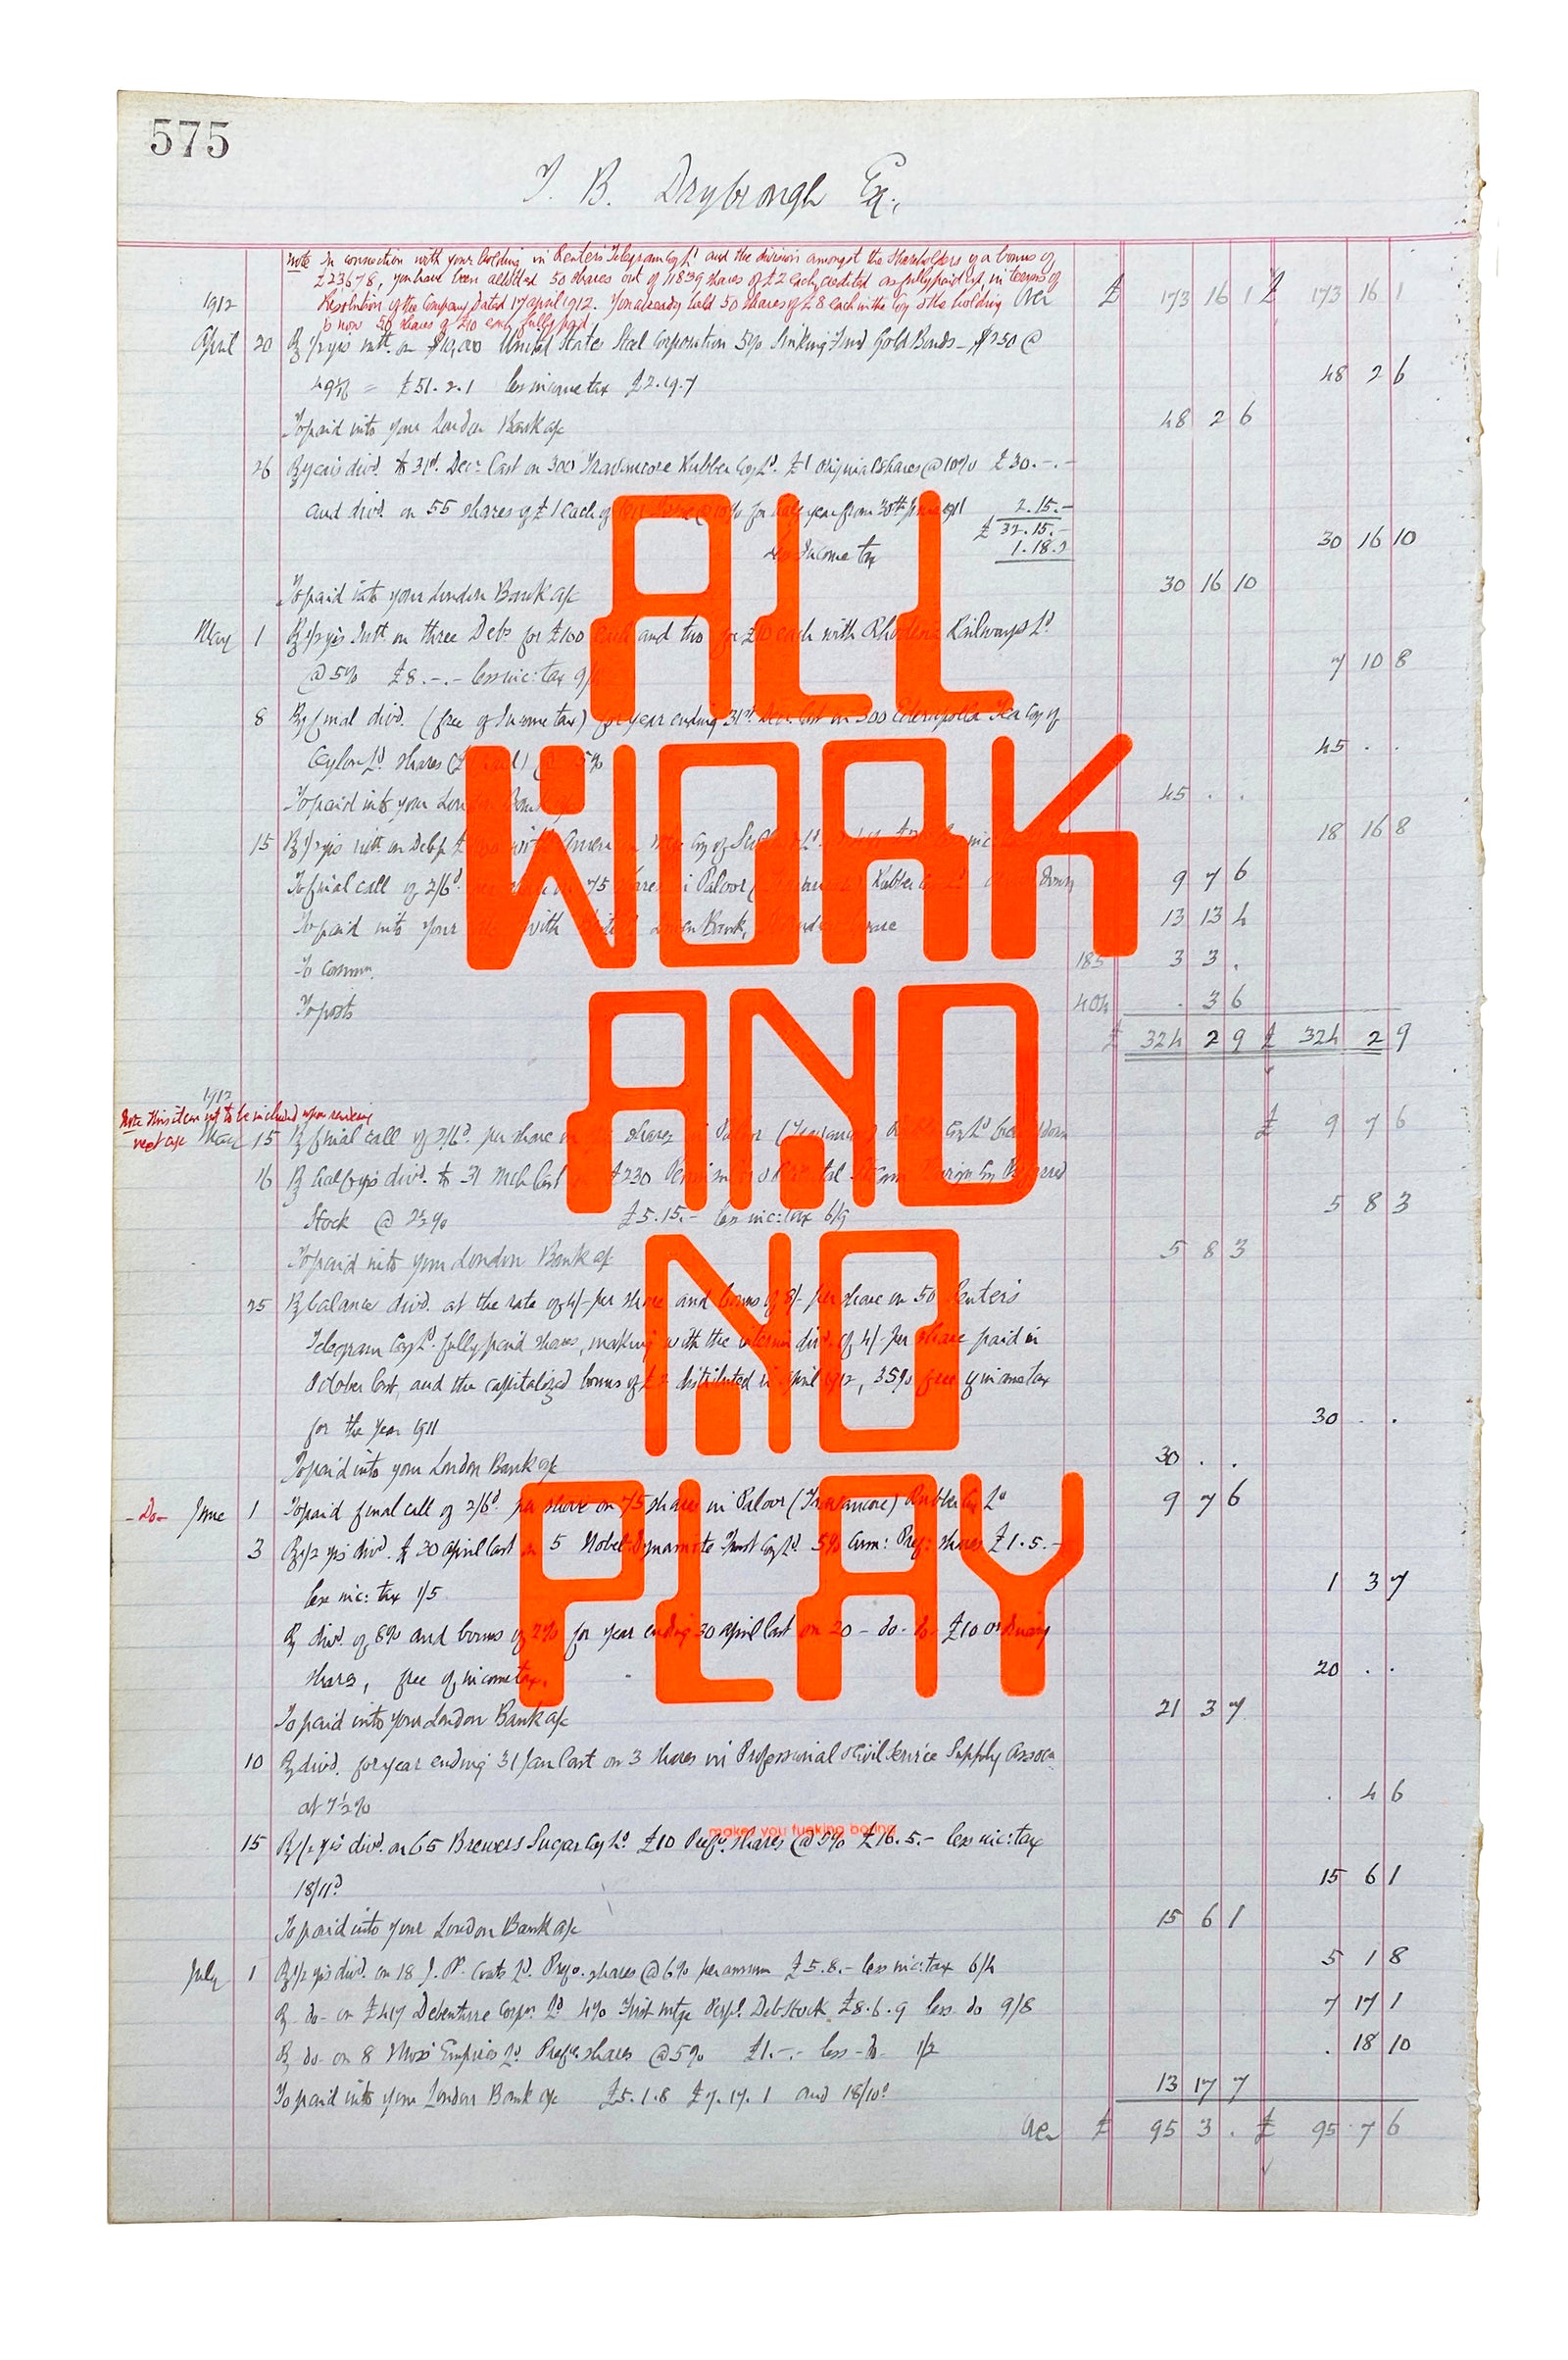 575
T. B. Drybrough Esq.,
Note In connection with your holding in Reuter's Telegram Coy Ld and the division amongst the shareholders of a bonus of
£23678, you have been allotted 50 shares out of 11839 shares of £2 each, credited as fully paid up, in terms of
1912 Resolution of the Company dated 17 April 1912. You already held 50 shares of £8 each in the Coy & the holding Over £ 173 16 1 £ 173 16 1
is now 50 shares of £10 each fully paid
April 20 By ½ yrs intt. on $10,000 United States Steel Corporation 5% Sinking Fund Gold Bonds - $250 @
= £51. 2. 1 less income tax £2. 19. 7 48 2 6
To paid into your London Bank a/c 48 2 6
26 By year's divd. to 31st. Decr. last on 300 Travancore Rubber Coy Ld. £1 original shares @ 10% £30. -. -
and divd. on 55 shares of £1 each of for half year from 30th June 1911 2. 15. -
£ 32. 15. -
Income tax 1. 18. 2 30 16 10
To paid into your London Bank a/c 30 16 10
May 1 By ½ yrs Intt. on three Debs for £100 each and two for £10 each with Rhodesia Railways Ld.
@ 5% £8. -. - less inc: tax 9/ 7 10 8
8 By final divd. (free of Income tax) for year ending 31st. Dec. last on 300 Ederapolla Tea Coy of
Ceylon Ld. shares 5% 45 . .
To paid into your London Bank a/c 45 . .
15 By ½ yrs intt. on Deb 18 16 8
To final call of 2/6d. 75 shares in Paloor Rubber Down 9 7 6
To paid into your with Bank, 13 13 4
To Commn. 185 3 3 .
To posts 404 . 3 6
£ 324 2 9 £ 324 2 9
1912
Note this item not to be included when rendering
next a/c May 15 By final call of 2/6d. per share on shares in Paloor (Travancore) Rubber Coy Ld brot down £ 9 7 6
16 By half yrs divd. to 31 Mch last £230 Peninsular & Oriental Steam Navign Coy Preferred
Stock @ 2½% £5. 15. - less inc: tax 6/9 5 8 3
To paid into your London Bank a/c 5 8 3
25 By balance divd. at the rate of 4/- per share and bonus of 8/- per share on 50 Reuter's
Telegram Coy Ld. fully paid shares, making with the interim divd. of 4/- per share paid in
October last, and the capitalized bonus of £2 distributed in April 1912, 35% free of income tax
for the year 1911 30 . .
To paid into your London Bank a/c 30 . .
-Do- June 1 To paid final call of 2/6d. per share on 75 shares in Paloor (Travancore) Rubber Coy Ld 9 7 6
3 By ½ yrs divd. to 30 April last on 5 Nobel-Dynamite Trust Coy Ld. 5% Cum: Pref: shares £1. 5. -
less inc: tax 1/5 1 3 7
By divd. of 8% and bonus of 2% for year ending 30 April last on 20 - do - do - £10 ordinary
shares, free of income tax. 20 . .
To paid into your London Bank a/c 21 3 7
10 By divd. for year ending 31 Jan last on 3 shares in Professional & Civil Service Supply Assocn
at 7½% . 4 6
15 By ½ yrs divd. on 65 Brewers Sugar Coy Ld. £10 Prefce. shares @ 5% £16. 5. - less inc: tax
18/11d 15 6 1
To paid into your London Bank a/c 15 6 1
July 1 By ½ yrs divd. on 18 J. & P. Coats Ld. Prefce. shares @ 6% per annum £5. 8. - less inc: tax 6/4 5 1 8
By do - on £417 Debenture Corpn. Ld 4% First mtge Perpl. Deb Stock £8. 6. 9 less do 9/8 7 17 1
By do - on 8 Moss' Empires Ld. Prefce. shares @ 5% £1. -. - less - do - 1/2 . 18 10
To paid into your London Bank a/c £5. 1. 8 £7. 17. 1 and 18/10d 13 17 7
Over £ 95 3 . £ 95 7 6
ALL
WORK
AND
NO
PLAY
makes you fucking boring